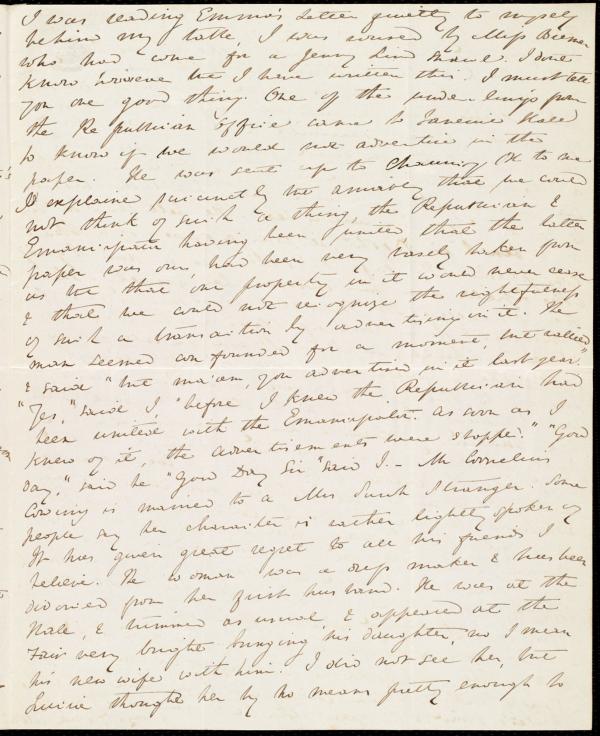 I was reading Emma's letter quietly to myself
behind my table, I was roused by Miss Beeman
who had come for a Jenny Lind shawl. I don't
know however but I have written this. I must tell
you one good thing. One of the underlings from
the Republican office came to Faneuil Hall
to know if we would not advertise in the
paper. He was sent up to Channing & to me
I explained succinctly but amiably that we could
not think of such a thing, the Republican &
Emancipator having been united that the latter
paper was ours, had been very basely taken from
us but that our property in it would never cease
& that we could not recognize the rightfulness
of such a transaction by advertising in it. The
man seemed confounded for a moment, but rallied
& said "but ma'am, you advertised in it last year."
"Yes," said I, "before I knew the Republican had
been united with the Emancipator. As soon as I
knew of it, the advertisements were stopped." "Good
day," said he "Good Day Sir" said I. - Mr Cornelius
Cowing is married to a Mrs Sarah Stranger. Some
people say her character is rather lightly spoken of
It has given great regret to all his friends I
believe. The woman was a dress maker & has been
divorced from her first husband. He was at the
Hall, & as usual, & appeared at the
Fair very bright bringing his daughter, no I mean
his new wife with him. I did not see her, but
Louisa thought her by no means pretty enough to